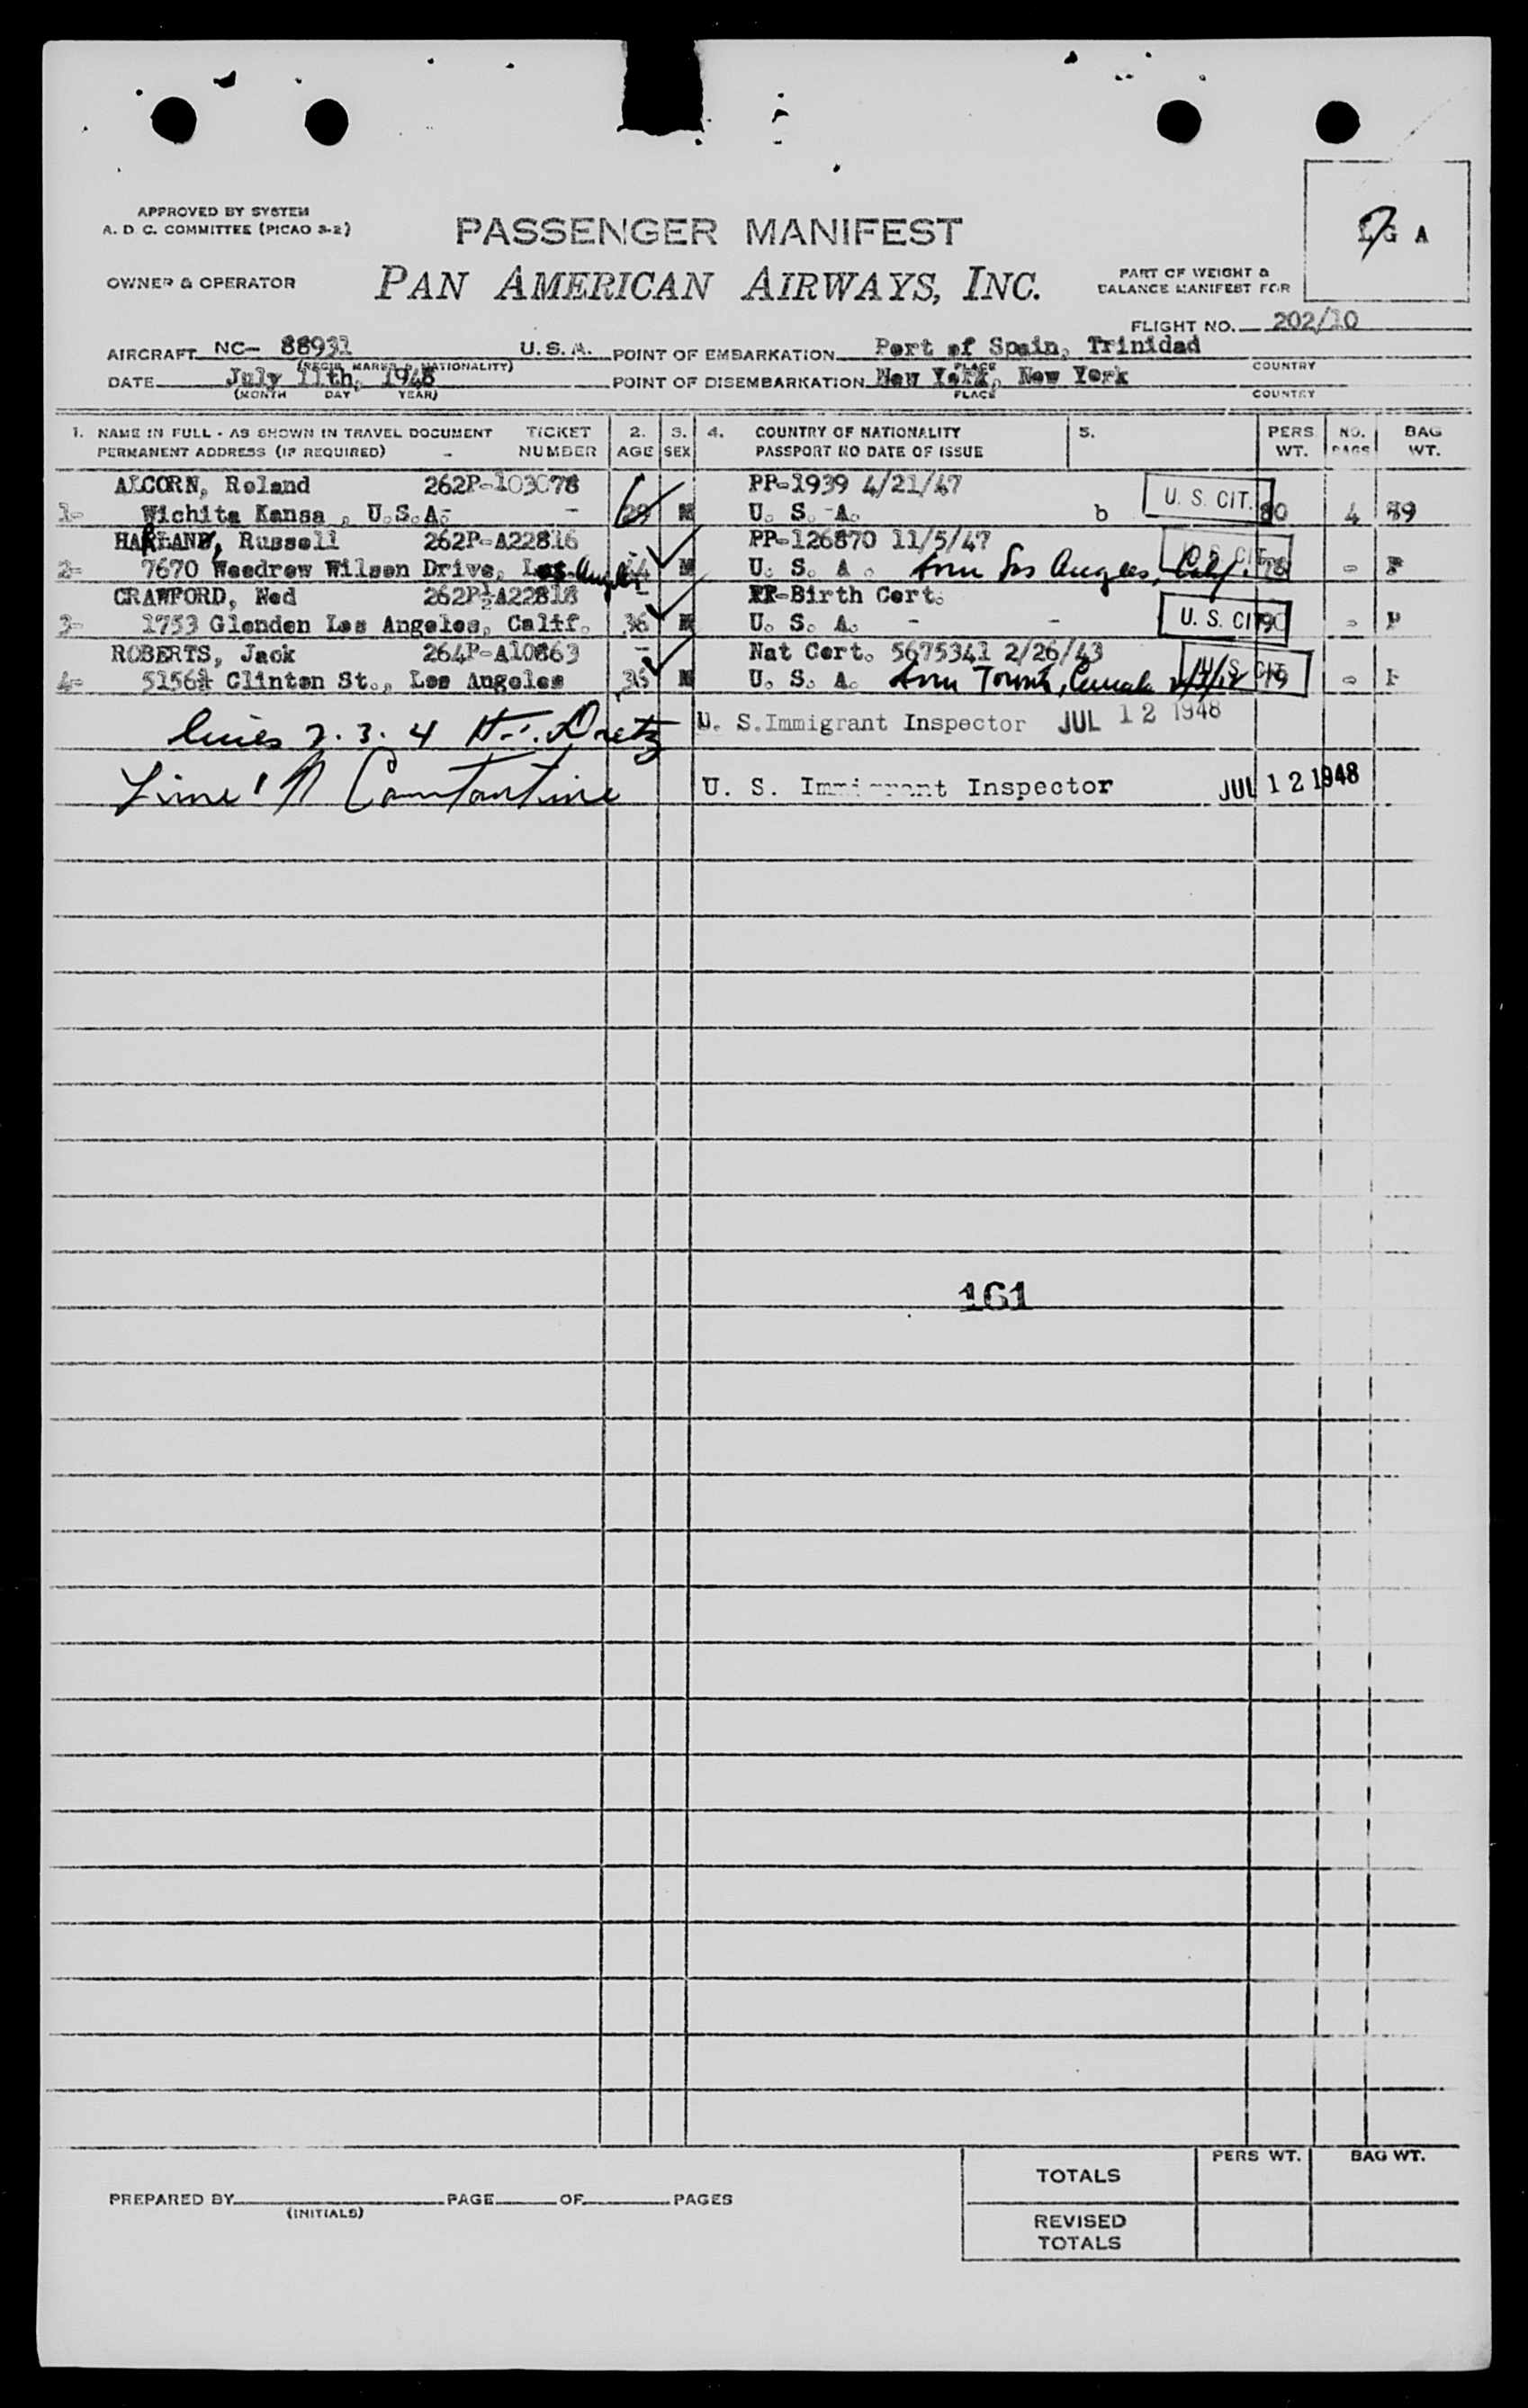 APPROVED BY SYSTEM
A. D. C. COMMITTEE (PICAO 3-2)
PASSENGER MANIFEST
LG A
7
OWNER & OPERATOR
PAN AMERICAN AIRWAYS, INC.
PART OF WEIGHT &
BALANCE MANIFEST FOR
FLIGHT NO. 202/10
AIRCRAFT NC- 88931 U.S.A. POINT OF EMBARKATION Port of Spain, Trinidad
(REGIS. MARKS & NATIONALITY) PLACE COUNTRY
DATE July 11th, 1948 POINT OF DISEMBARKATION New York, New York
(MONTH DAY YEAR) PLACE COUNTRY
1. NAME IN FULL - AS SHOWN IN TRAVEL DOCUMENT TICKET 2. 3. 4. COUNTRY OF NATIONALITY 5. PERS NO. BAG
PERMANENT ADDRESS (IF REQUIRED) - NUMBER AGE SEX PASSPORT NO DATE OF ISSUE WT. BAGS WT.
ALCORN, Roland 262P-103078 PP-1939 4/21/47
1- Wichita Kansa , U.S.A.- - 29 M U. S. A. b U. S. CIT. 80 4 89
HARLAND, Russell 262P-A22816 PP-126870 11/5/47
2- 7670 Woodrow Wilson Drive, Los Angeles 44 M U. S. A. born Los Angeles, Calif. U. S. CIT. 78 - F
CRAWFORD, Ned 262P½A22818 - PP-Birth Cert.
3- 1753 Glendon Los Angeles, Calif. 36 M U. S. A. - - U. S. CIT. 90 - F
ROBERTS, Jack 264P-A10863 - Nat Cert. 5675341 2/26/43
4- 5156¾ Clinton St., Los Angeles 36 M U. S. A. born Toronto, Canada U. S. CIT. 79 - F
lines 2. 3. 4 U. S. Immigrant Inspector JUL 12 1948
Line 1 N Constantine U. S. Immigrant Inspector JUL 12 1948
161
PREPARED BY PAGE OF PAGES
(INITIALS)
TOTALS PERS WT. BAG WT.
REVISED
TOTALS